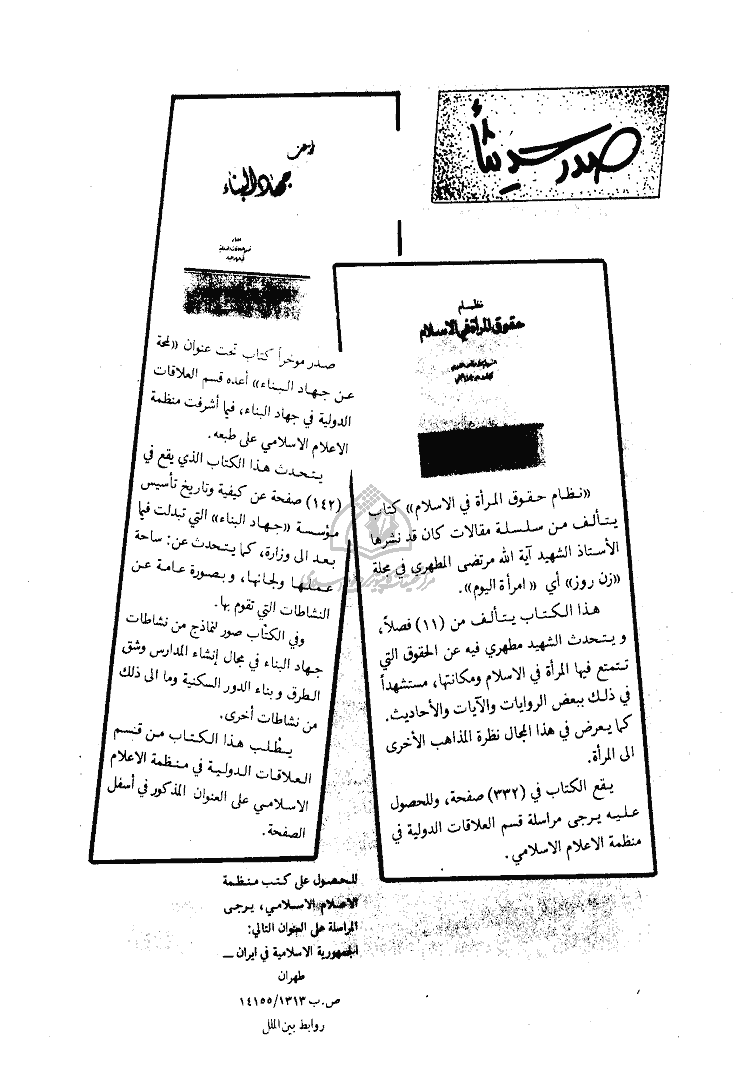 صدر حديثاً
نظام
حقوق المرأة في الاسلام
«نظام حقوق المرأة في الاسلام» كتاب
يتألف من سلسلة مقالات كان قد نشرها
الأستاذ الشهيد آية الله مرتضى المطهري في مجلة
«زن روز» أي «امرأة اليوم».
هذا الكتاب يتألف من (١١) فصلاً،
و يتحدث الشهيد مطهري فيه عن الحقوق التي
تتمتع فيها المرأة في الاسلام ومكانتها، مستشهداً
في ذلك ببعض الروايات والآيات والأحاديث.
كما يعرض في هذا المجال نظرة المذاهب الأخرى
الى المرأة.
يقع الكتاب في (٣٣٢) صفحة، وللحصول
عليه يرجى مراسلة قسم العلاقات الدولية في
منظمة الاعلام الاسلامي.
جهاد البناء
صدر موخراً كتاب تحت عنوان «لمحة
عن جهاد البناء» أعده قسم العلاقات
الدولية في جهاد البناء، فيما أشرفت منظمة
الاعلام الاسلامي على طبعه.
يتحدث هذا الكتاب الذي يقع في
(١٤٢) صفحة عن كيفية وتاريخ تأسيس
مؤسسة «جهاد البناء» التي تبدلت فيما
بعد الى وزارة، كما يتحدث عن: ساحة
عملها ولجانها، و بصورة عامة عن
النشاطات التي تقوم بها.
وفي الكتاب صور لنماذج من نشاطات
جهاد البناء في مجال إنشاء المدارس وشق
الطرق و بناء الدور السكنية وما الى ذلك
من نشاطات أخرى.
يطلب هذا الكتاب من قسم
العلاقات الدولية في منظمة الاعلام
الاسلامي على العنوان المذكور في أسفل
الصفحة.
للحصول على كتب منظمة
الاعلام الاسلامي، يرجى
المراسلة على العنوان التالي:
الجمهورية الاسلامية في ايران ــ
طهران
ص.ب ١٤١٥٥/١٣١٣
روابط بين الملل